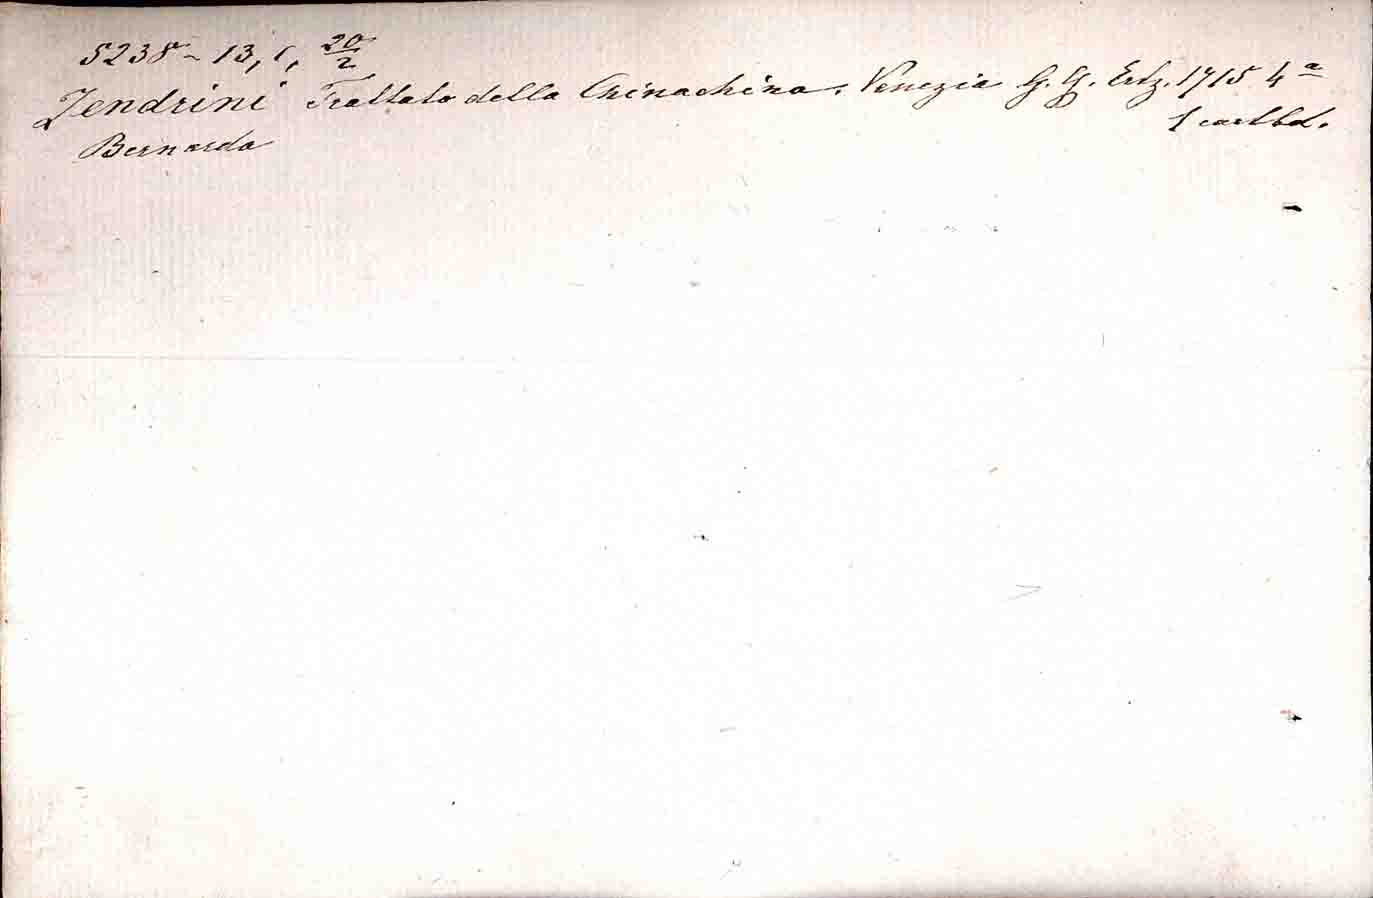 5238 - 13, 1, 20/2
Zendrini Trattato della Chinachina. Venezia G. G. Ertz. 1715 4a
Bernardo 1 cartbd.